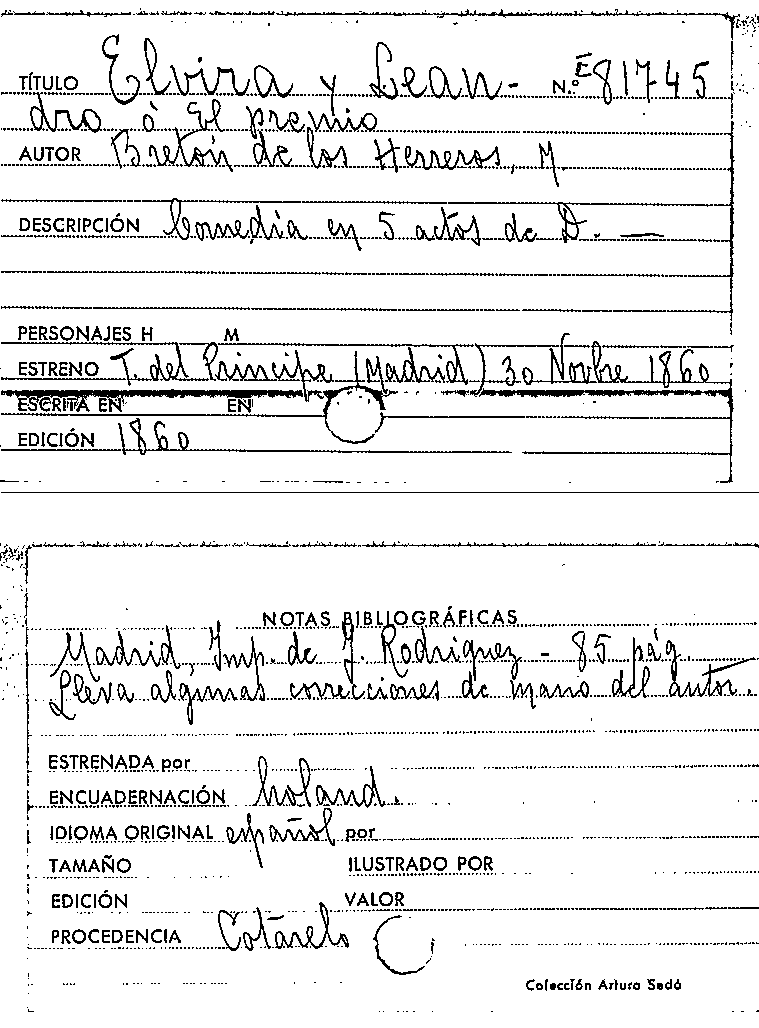 TÍTULO Elvira y Lean- N.º E 81745
dro ó El premio
AUTOR Bretón de los Herreros, M.
DESCRIPCIÓN Comedia en 5 actos de D. —
PERSONAJES H M
ESTRENO T. del Principe (Madrid) 30 Novbre 1860
ESCRITA EN EN
EDICIÓN 1860
NOTAS BIBLIOGRÁFICAS
Madrid, Imp. de J. Rodriguez - 85 pág
Lleva algunas correcciones de mano del autor.
ESTRENADA por
ENCUADERNACIÓN holand.
IDIOMA ORIGINAL español por
TAMAÑO ILUSTRADO POR
EDICIÓN VALOR
PROCEDENCIA Cotarelo
Colección Arturo Sedó